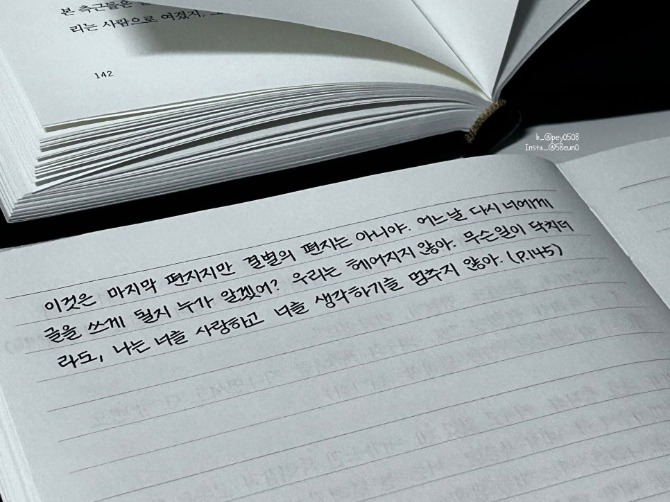 본 측근들은
리는 사람으로 여겼지,
142
b_@pey0508
Insta_@58eun0
이것은 마지막 편지지만 결별의 편지는 아니야. 어느날 다시 너에게
글을 쓰게 될지 누가 알겠어? 우리는 헤어지지 않아. 무슨일이 닥치더
라도, 나는 너를 사랑하고 너를 생각하기를 멈추지 않아. (P.145)